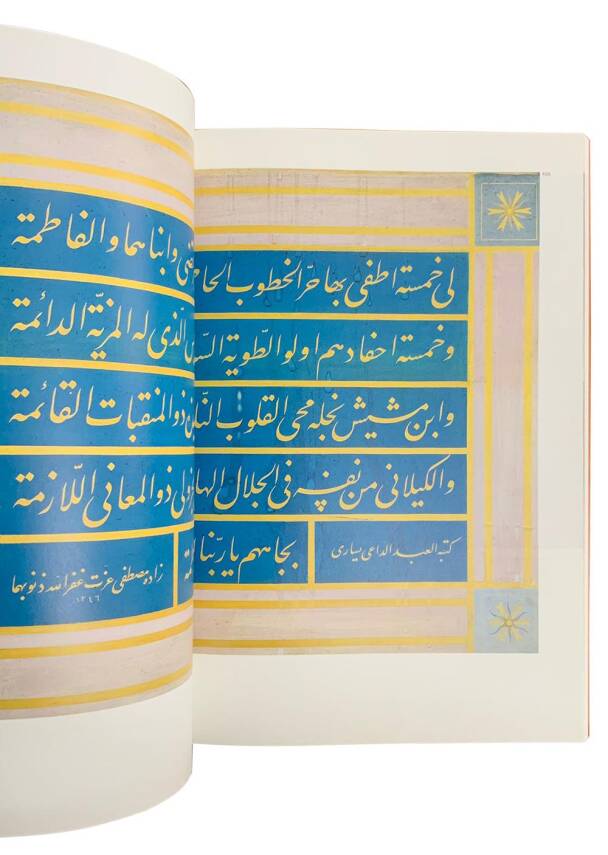 لى خمسة اطفى بها حرّ الخطوب
وخمسة احفادهم اولو الطّوية
وابن مشيش نجله محى القلوب
والكيلانى من فى الجلال
كتبه العبد الداعى يسارى
بجاههم يا ربّنا
وابناهما والفاطمة
الّذى له المزيّة الدائمة
ذو المنقبات القائمة
ذو المعانى اللّازمة
زاده مصطفى عزت غفر الله ذنوبهما
١٢٤٦